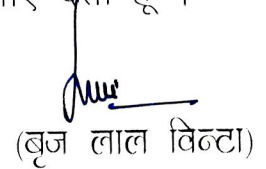 (बृज लाल विन्टा)